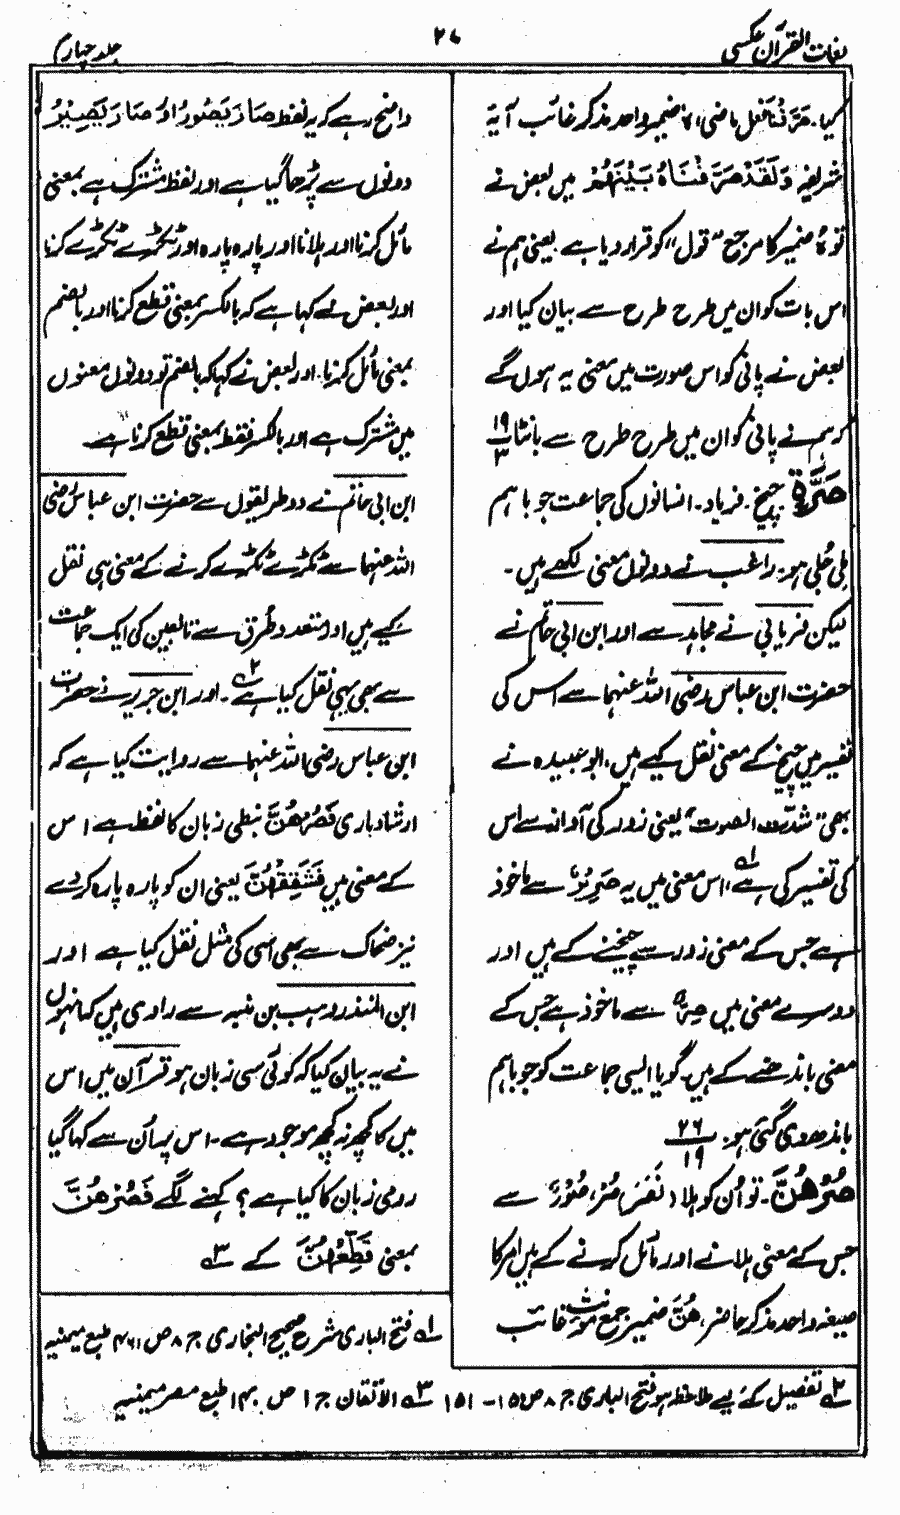 لغات القرآن عکسی
۲۷
جلد چہارم
کیا۔ صَرَّفْنَا فعل ماضی، ہٗ ضمیر واحد مذکر غائب آیۂ
شریفہ وَلَقَدْ صَرَّفْنَاہُ بَیْنَھُمْ میں بعض نے
تو ہٗ ضمیر کا مرجع "قول" کو قرار دیا ہے یعنی ہم نے
اس بات کو ان میں طرح طرح سے بیان کیا اور
بعض نے پانی کو اس صورت میں معنی یہ ہوں گے
کہ ہم نے پانی کو ان میں طرح طرح سے بانٹا ۱۹/۳
صَرَّةٍ چیخ۔ فریاد۔ انسانوں کی جماعت جو باہم
ملی جلی ہو۔ راغب نے دونوں معنی لکھے ہیں۔
لیکن فریابی نے مجاہد سے اور ابن ابی حاتم نے
حضرت ابن عباس رضی اللہ عنہما سے اس کی
تفسیر میں چیخ کے معنی نقل کیے ہیں، ابو عبیدہ نے
بھی "شدّت الصوت" یعنی زور کی آواز سے اس
کی تفسیر کی ہے ۱؎، اس معنی میں یہ صَرِیْرٌ سے ماخوذ
ہے جس کے معنی زور سے چیخنے کے ہیں اور
دوسرے معنی میں صِرَّۃٌ سے ماخوذ ہے جس کے
معنی باندھنے کے ہیں۔ گویا ایسی جماعت کو جو باہم
باندھ دی گئی ہو۔ ۲۶/۱۹
صُرْھُنَّ۔ تو اُن کو ہلا (نَصَرَ) صُرْ، صَوْرٌ سے
جس کے معنی ہلانے اور مائل کرنے کے ہیں امر کا
صیغہ واحد مذکر حاضر، ھُنَّ ضمیر جمع مؤنث غائب
واضح رہے کہ یہ لفظ صَارَ یَصُوْرُ اور صَارَ یَصِیْرُ
دونوں سے پڑھا گیا ہے اور لفظ مشترک ہے بمعنی
مائل کرنا اور ہلانا اور پارہ پارہ اور ٹکڑے ٹکڑے کرنا
اور بعض نے کہا ہے کہ بالکسر بمعنی قطع کرنا اور بالضم
بمعنی مائل کرنا۔ اور بعض نے کہا کہ بالضم تو دونوں معنوں
میں مشترک ہے اور بالکسر فقط بمعنی قطع کرنا ہے۔
ابن ابی حاتم نے دو طریقوں سے حضرت ابن عباس رضی
اللہ عنہما سے ٹکڑے ٹکڑے کرنے کے معنی ہی نقل
کیے ہیں اور متعدد طُرق سے تابعین کی ایک جماعت
سے بھی یہی نقل کیا ہے ۲؎۔ اور ابن جریر نے حضرت
ابن عباس رضی اللہ عنہما سے روایت کیا ہے کہ
ارشاد باری فَصُرْھُنَّ نبطی زبان کا لفظ ہے اس
کے معنی ہیں فَشَقِّقْھُنَّ یعنی ان کو پارہ پارہ کر دے
نیز ضحاک سے بھی اسی کی مثل نقل کیا ہے اور
ابن المنذر وہب بن منبہ سے راوی ہیں کہ انہوں
نے یہ بیان کیا کہ کوئی سی زبان ہو قرآن میں اس
میں کا کچھ نہ کچھ موجود ہے۔ اس پر اُن سے کہا گیا
رومی زبان کا کیا ہے؟ کہنے لگے فَصُرْھُنَّ
بمعنی قَطِّعْھُنَّ کے ۳؎
۱؎ فتح الباری شرح صحیح البخاری ج ۸ ص ۴۶۱ طبع میمنیہ
۲؎ تفصیل کے لیے ملاحظہ ہو فتح الباری ج ۸ ص ۱۵۰-۱۵۱ ۳؎ الاتقان ج ۱ ص ۱۴۰ طبع مصر میمنیہ